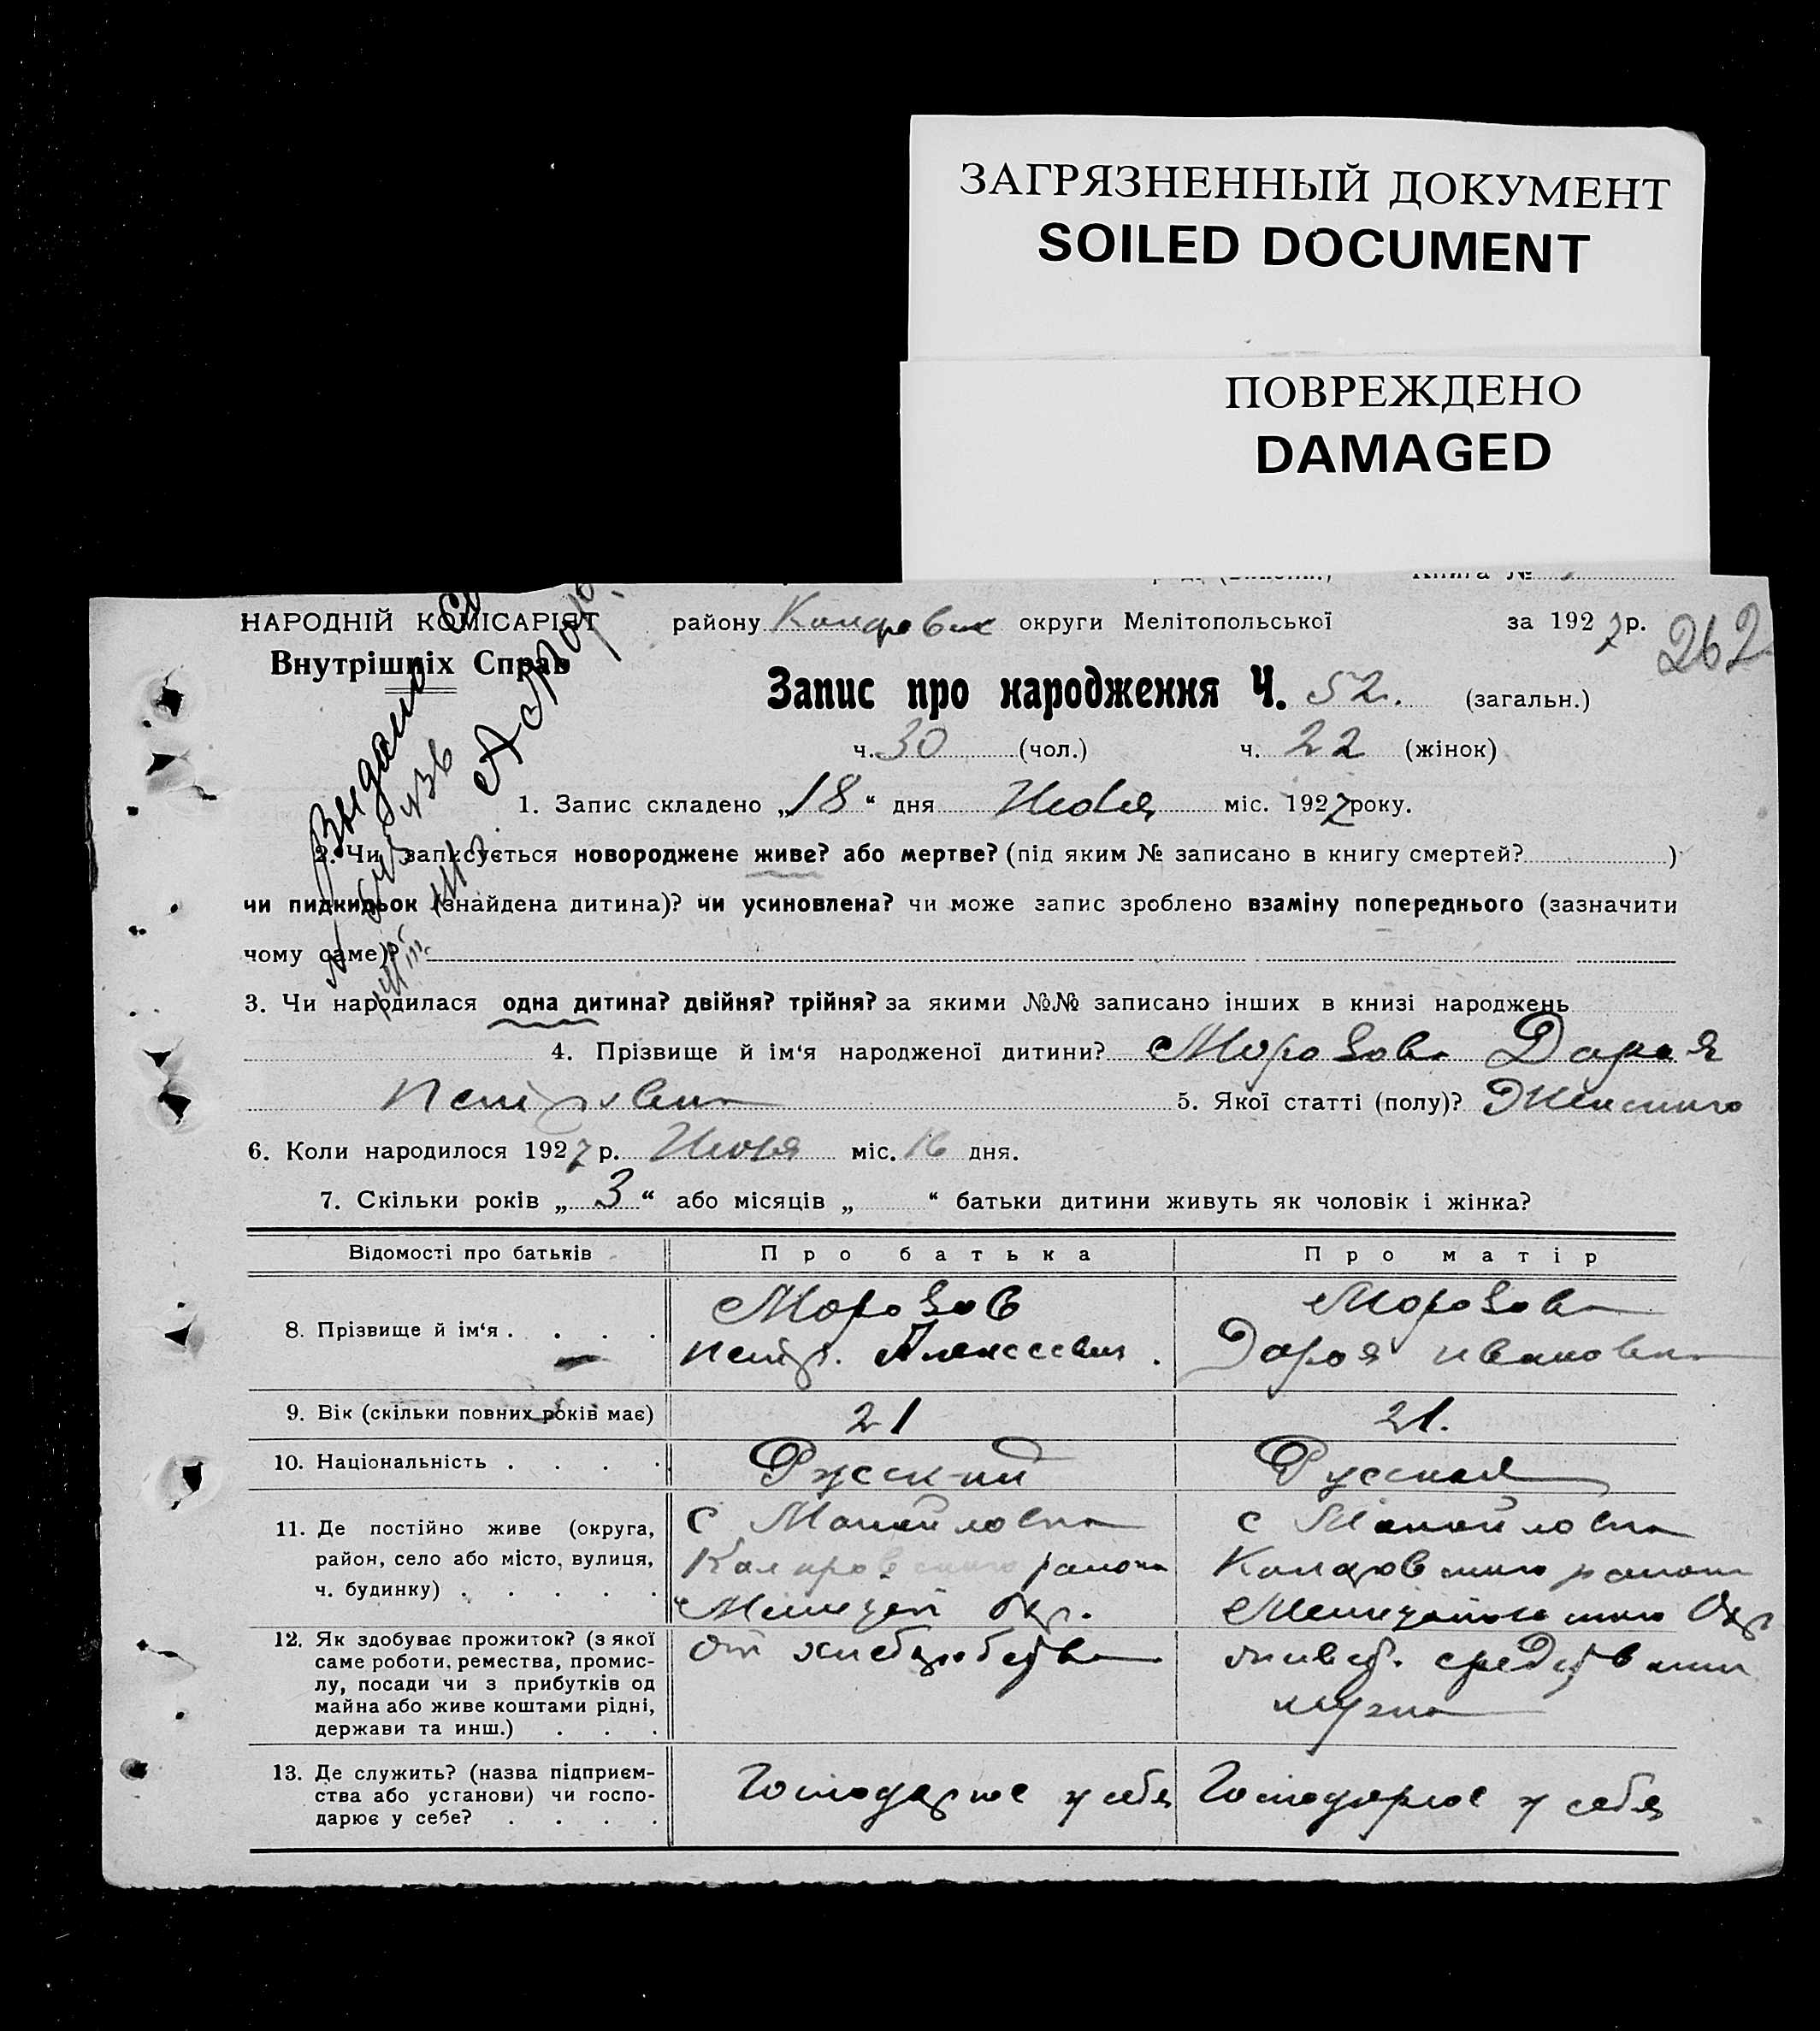 ЗАГРЯЗНЕННЫЙ ДОКУМЕНТ
SOILED DOCUMENT
ПОВРЕЖДЕНО
DAMAGED
Книга №
НАРОДНІЙ КОМІСАРІЯТ
Внутрішніх Справ
району округи Мелітопольської за 1927 р.
262
Запис про народження Ч. 52. (загальн.)
ч. 30 (чол.) ч. 22 (жінок)
Выдано
1. Запис складено „18“ дня Июля міс. 1927 року.
2. Чи записується новороджене живе? або мертве? (під яким № записано в книгу смертей? )
чи пидкидьок (знайдена дитина)? чи усиновлена? чи може запис зроблено взаміну попереднього (зазначити
чому саме)?
3. Чи народилася одна дитина? двійня? трійня? за якими №№ записано інших в книзі народжень
4. Прізвище й ім‘я народженої дитини? Морозова Дарья
Петровна 5. Якої статті (полу)? Женского
6. Коли народилося 1927 р. Июля міс. 16 дня.
7. Скільки років „3“ або місяців „ “ батьки дитини живуть як чоловік і жінка?
Відомості про батьків Про батька Про матір
8. Прізвище й ім‘я . . . . Морозов Морозова
Петр. Алексеевич. Дарья Ивановна
9. Вік (скільки повних років має) 21 21.
10. Національність . . . . Русский Русская
11. Де постійно живе (округа, район, село або місто, вулиця, ч. будинку) . . . . .
с Манойловка с Манойловка
района района
Окр. Окр
12. Як здобуває прожиток? (з якої саме роботи, ремества, промислу, посади чи з прибутків од майна або живе коштами рідні, держави та инш.) . . .
От хлеборобства средствами
мужа
13. Де служить? (назва підприємства або установи) чи господарює у себе? . . . .
Господарює у себя Господарює у себя